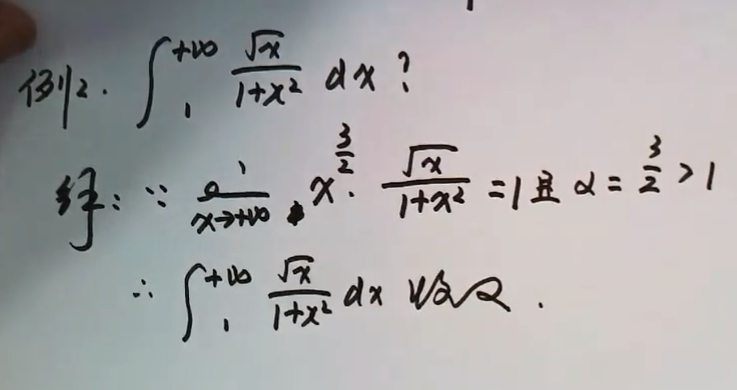 例2. ∫₁^{+∞} √x/(1+x²) dx ?
解: ∵ lim_{x→+∞} x^{3/2} · √x/(1+x²) = 1 且 α = 3/2 > 1
∴ ∫₁^{+∞} √x/(1+x²) dx 收敛.